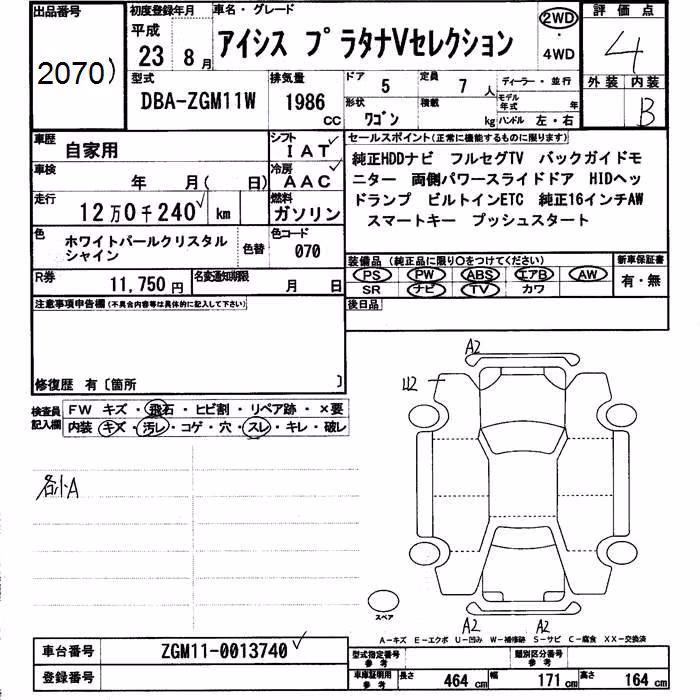 出品番号
2070)
初度登録年月
平成
23 8月
車名・グレード
アイシス プラタナVセレクション
2WD
・
4WD
評価点
4
外装 内装
B
型式
DBA-ZGM11W
排気量
1986
CC
ドア
5
定員
7 人
形状
ワゴン
積載
kg
ディーラー・並行
モデル年式 年
ハンドル 左・右
車歴
自家用
シフト
IAT
車検
年 月( 日)
冷房
AAC
走行
12万0千240 km
燃料
ガソリン
色
ホワイトパールクリスタル
シャイン
色替
色コード
070
R券
11,750円
名変通知期限
月 日
セールスポイント(正常に機能するものに限ります)
純正HDDナビ フルセグTV バックガイドモ
ニター 両側パワースライドドア HIDヘッ
ドランプ ビルトインETC 純正16インチAW
スマートキー プッシュスタート
装備品(純正品に限り〇をつけてください)
PS PW ABS エアB AW
SR ナビ TV カワ
新車保証書
有・無
後日品
注意事項申告欄(不具合内容等は具体的に記入して下さい)
修復歴 有〔箇所 〕
検査員
記入欄
FW キズ・飛石・ヒビ割・リペア跡・×要
内装 キズ・汚レ・コゲ・穴・スレ・キレ・破レ
各小A
A2
U2
A2
A2
スペア
A-キズ E-エクボ U-凹み W-補修跡 S-サビ C-腐食 XX-交換済
車台番号
ZGM11-0013740
登録番号
型式指定番号
参考
類別区分番号
参考
車庫証明用
参考
長さ 464cm 幅 171cm 高さ 164cm